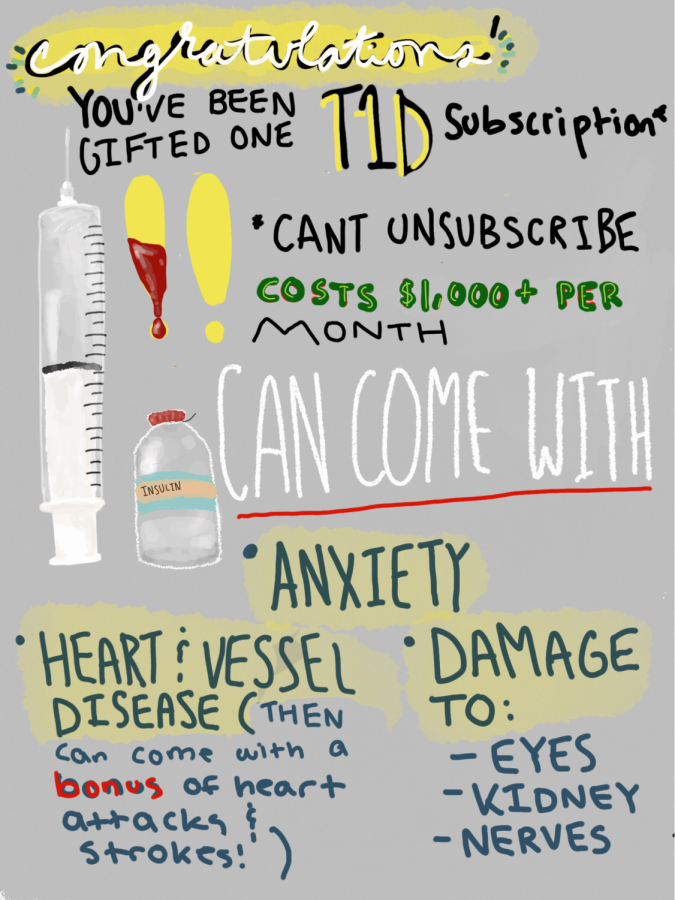 congratulations!
YOU'VE BEEN
GIFTED ONE
T1D Subscription*
*CANT UNSUBSCRIBE
COSTS $1,000+ PER
MONTH
CAN COME WITH
INSULIN
• ANXIETY
• HEART & VESSEL
DISEASE (THEN
can come with a
bonus of heart
attacks &
strokes!)
• DAMAGE
TO:
- EYES
- KIDNEY
- NERVES